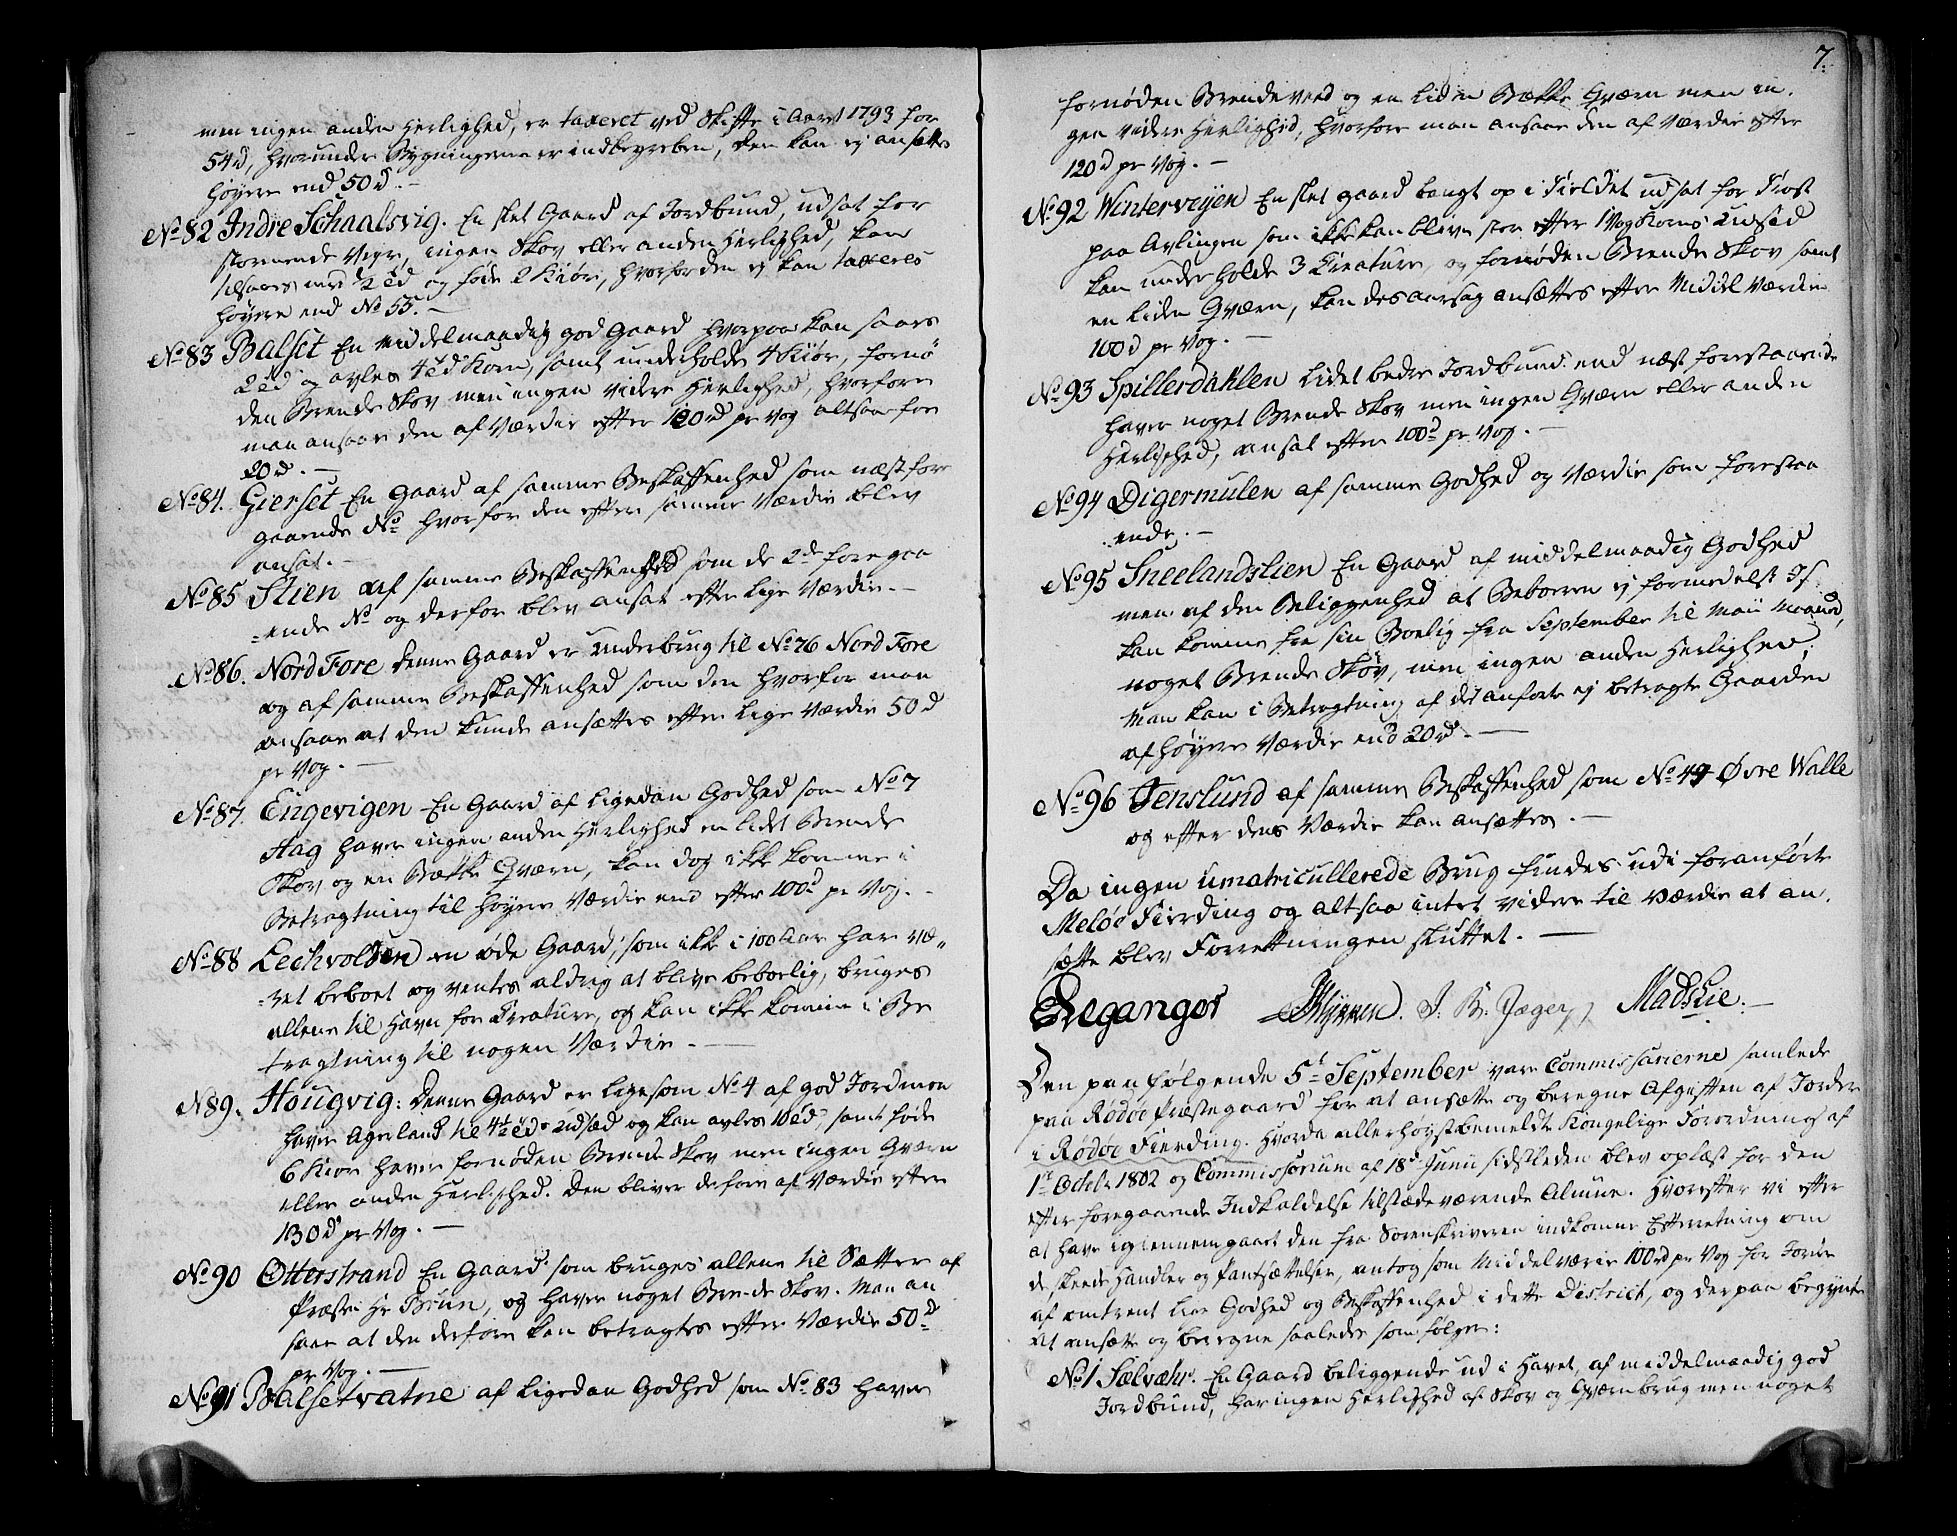 men ingen anden Herlighed, er taxeret ved Skifte i Aaret 1793 for
54rd, hvorunder Bygningerne er indbegreben, den kan ej ansættes
høyere end 50rd. —
No 82 Indre Schaalsvig. En slet Gaard af Jordbund, udsat for
stormende Veyr, ingen Skov eller anden Herlighed, kan
tilsaaes med ½ Td og føde 2 Kiør, hvorfor den ej kan taxeres
høyere end No 55. —
No 83 Balset En middelmaadig god Gaard hvorpaa kan saaes
2 Td og avles 4 Td Korn, samt underholde 4 Kiør, fornø
den Brende Skov men ingen videre Herlighed, hvorfore
man ansaae den af Værdie efter 120rd pr Vog altsaa for
20rd. —
No 84. Gierset En Gaard af samme Beskaffenhed som næst fore
gaaende No hvorfor den efter samme Værdie blev
ansat. —
No 85 Stien af samme Beskaffenhed som de 2de foregaa
ende No og derfor blev ansat efter lige Værdie. —
No 86. Nord Fore denne Gaard er underbrug til No 76 Nord Fore
og af samme Beskaffenhed som den hvorfor man
ansaae at den kunde ansættes efter lige Værdie 50 d
pr Vog. —
No 87. Engevigen En Gaard af ligedan Godhed som No 7
Hag haver ingen anden Herlighed en lidt Brende
Skov og en Bække Qværn, kan dog ikke komme i
Betragtning til høyere Værdie end efter 100d pr Vog. —
No 88 Lechvolden en øde Gaard, som ikke i 100 Aar har væ
ret beboet og ventes aldrig at blive beboelig, bruges
allene til Havn for Creature, og kan ikke komme i Be
tragtning til nogen Værdie. —
No 89. Hougvig: Denne Gaard er ligesom No 4 af god Jordmon
haver Agerland til 4½ Td Udsæd og kan avles 10 Td, samt føde
6 Kiør haver fornøden Brende Skov men ingen Qværn
eller anden Herlighed. Den bliver derfore af Værdie efter
130d pr Vog. —
No 90 Otterstrand En Gaard som bruges allene til Sætter af
Præsten Hr Brun, og haver noget Brende Skov. Man an
saae at den derfore kan betragtes efter Værdie 50d
pr Vog. —
No 91 Balsetvatne af ligedan Godhed som No 83 haver
7.
fornøden Brendeveed og en liden Bække Qværn men in
gen videre Herlighed, hvorfore man ansaae den af Værdie efter
120d pr Vog. —
No 92 Winterveyen En slet gaard langt op i Fieldet udsat for Frost
paa Avlingen som ikke kan blive stor efter 1 Vog Korns Udsæd
kan underholde 3 Creature, og fornøden Brende Skov samt
en liden Qværn, kan desaarsag ansættes efter Middel Værdie
100d pr Vog. —
No 93 Spillerdahlen lidet bedre Jordbund end næst forestaaende
haver noget Brende Skov men ingen Qværn eller anden
Herlighed, ansat efter 100d pr Vog. —
No 94 Digermulen af samme Godhed og Værdie som forestaa
ende. —
No 95 Sneelandslien En Gaard af middelmaadig Godhed
men af den Beliggenhed at Beboeren ej formedelst Is
kan komme fra sin Boelig fra September til Maii Maaned,
noget Brende Skov, men ingen anden Herlighed,
Man kan i Betragtning af det anførte ej betragte Gaarden
af høyere Værdie end 20rd. —
No 96 Jenslund af samme Beskaffenhed som No 44 Øvre Walle
og efter dens Værdie kan ansættes. —
Da ingen umatricullerede Brug findes udi foranførte
Meløe Fierding og altsaa intet videre til Værdie at an
sætte blev Forrettningen sluttet. —
J. B. Jæger Mads Lie. —
Den paafølgende 5t September vare Commissarierne samlede
paa Rødøe Præstegaard for at ansætte og beregne Afgiften af Jorder
i Rødøe Fierding. Hvorda allerhøystbemeldte Kongelige Forordning af
1t Octobr 1802 og Commissorium af 18d Junii sidstleden blev oplæst for den
efter foregaaende Indkaldelse tilstædeværende Almue. Hvorefter vi efter
at have igiennemgaaet den fra Sorenskriveren indkomne Efterretning om
de skeede Handler og Pantsættelser, antog som Middelværdie 100rd pr Vog for Jorder
af omtrent lige Godhed og Beskaffenhed i dette District, og derpaa begynte
at ansætte og beregne saaledes som følger:
No 1 Sælvær. En Gaard beliggende ud i Havet, af middelmaadig god
Jordbund, har ingen Herlighed af Skov og Qværnbrug men noget